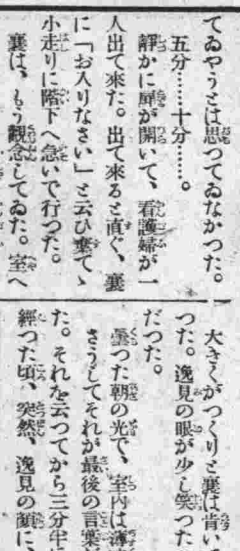 てゐやうとは思つてゐなかつた。
五分……十分……。
靜かに扉が開いて、看護婦が一
人出て來た。出て來ると直ぐ、襄
に「お入りなさい」と云ひ棄てゝ
小走りに階下へ急いで行つた。
襄は、もう觀念してゐた。室へ
大きくがつくりと襄は肯い
つた。逸見の眼が少し笑つた
だつた。
曇つた朝の光で、室内は薄
さうしてそれが最後の言葉
た。それを云つてから三分半
經つた頃、突然、逸見の顏に、